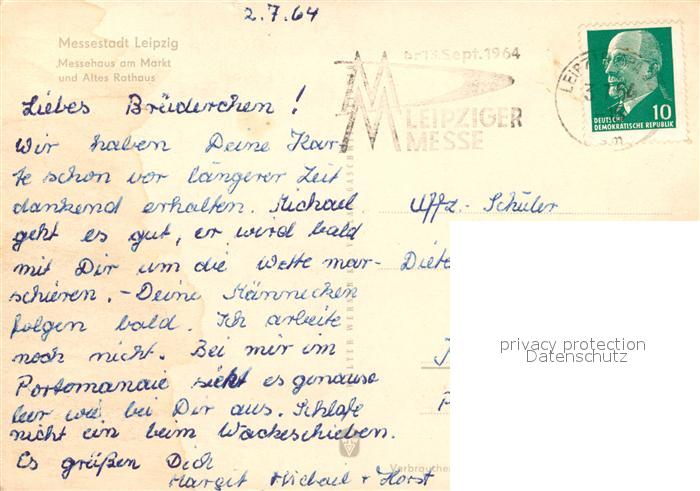 2.7.64
Messestadt Leipzig
Messehaus am Markt
und Altes Rathaus
6.-13. Sept. 1964
LEIPZIGER
MESSE
LEIPZIG
10
DEUTSCHE
DEMOKRATISCHE REPUBLIK
Liebes Brüderchen!
Wir haben Deine Kar-
te schon vor längerer Zeit
dankend erhalten. Michael
geht es gut, er wird bald
mit Dir um die Wette mar-
schieren. - Deine Männecken
folgen bald. Ich arbeite
noch nicht. Bei mir im
Portomanaie sieht es genauso
leer wie bei Dir aus. Schlafe
nicht ein beim Wacheschieben.
Es grüßen Dich
Margit Michael + Horst
Uffz.- Schüler
privacy protection
Datenschutz